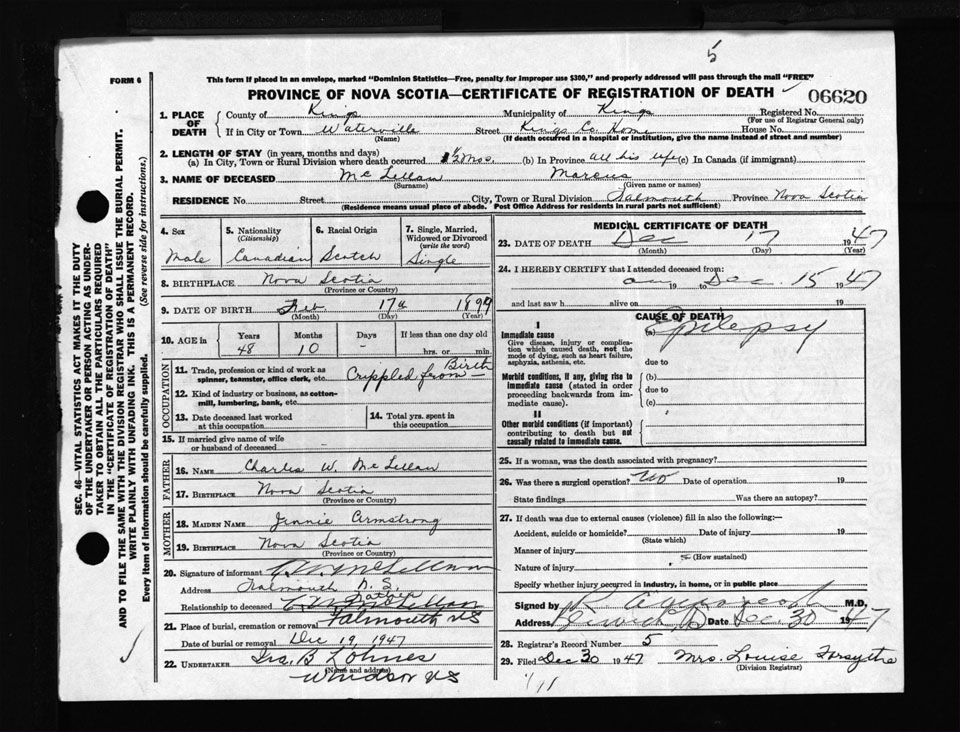 5
FORM 6
This form if placed in an envelope, marked "Dominion Statistics—Free, penalty for improper use $300," and properly addressed will pass through the mail "FREE"
PROVINCE OF NOVA SCOTIA—CERTIFICATE OF REGISTRATION OF DEATH
06620
1. PLACE OF DEATH
County of Kings Municipality of Kings Registered No.
(For use of Registrar General only)
If in City or Town Waterville Street Kings Co. Home House No.
(Name) (If death occurred in a hospital or institution, give the name instead of street and number)
2. LENGTH OF STAY (in years, months and days)
(a) In City, Town or Rural Division where death occurred 1½ Mos. (b) In Province all his life (c) In Canada (if immigrant)
3. NAME OF DECEASED McLellan Marcus
(Surname) (Given name or names)
RESIDENCE No. Street City, Town or Rural Division Falmouth Province Nova Scotia
(Residence means usual place of abode. Post Office Address for residents in rural parts not sufficient)
4. Sex Male
5. Nationality (Citizenship) Canadian
6. Racial Origin Scotch
7. Single, Married, Widowed or Divorced (write the word) Single
8. BIRTHPLACE Nova Scotia
(Province or Country)
9. DATE OF BIRTH Feb. 17th 1899
(Month) (Day) (Year)
10. AGE in Years Months Days If less than one day old
48 10 hrs. or min.
OCCUPATION
11. Trade, profession or kind of work as spinner, teamster, office clerk, etc. Crippled from Birth
12. Kind of industry or business, as cotton-mill, lumbering, bank, etc.
13. Date deceased last worked at this occupation
14. Total yrs. spent in this occupation
15. If married give name of wife or husband of deceased
FATHER
16. NAME Charles W. McLellan
17. BIRTHPLACE Nova Scotia
(Province or Country)
MOTHER
18. MAIDEN NAME Jennie Armstrong
19. BIRTHPLACE Nova Scotia
(Province or Country)
20. Signature of informant C. W. McLellan
Address Falmouth N. S.
Father
Relationship to deceased C W McLellan
21. Place of burial, cremation or removal Falmouth NS
Date of burial or removal Dec 19, 1947
22. UNDERTAKER Irs. B Lohnes
(Name and address)
Windsor NS
MEDICAL CERTIFICATE OF DEATH
23. DATE OF DEATH Dec 17 1947
(Month) (Day) (Year)
24. I HEREBY CERTIFY that I attended deceased from:
on 19 to Dec. 15 1947
and last saw h alive on 19
CAUSE OF DEATH
I
Immediate cause (a) Epilepsy
Give disease, injury or complication which caused death, not the mode of dying, such as heart failure, asphyxia, asthenia, etc.
due to
Morbid conditions, if any, giving rise to immediate cause (stated in order proceeding backwards from immediate cause).
(b)
due to
(c)
II
Other morbid conditions (if important) contributing to death but not causally related to immediate cause.
25. If a woman, was the death associated with pregnancy?
26. Was there a surgical operation? No Date of operation 19
State findings Was there an autopsy?
27. If death was due to external causes (violence) fill in also the following:—
Accident, suicide or homicide? Date of injury 19
(State which)
Manner of injury
(How sustained)
Nature of injury
Specify whether injury occurred in industry, in home, or in public place
Signed by M.D.
Address Berwick, Date Dec. 30 1947
28. Registrar's Record Number 5
29. Filed Dec 30 1947 Mrs. Louise Forsythe
(Division Registrar)
SEC. 46—VITAL STATISTICS ACT MAKES IT THE DUTY
OF THE UNDERTAKER OR PERSON ACTING AS UNDER-
TAKER TO OBTAIN ALL THE PARTICULARS REQUIRED
IN THE "CERTIFICATE OF REGISTRATION OF DEATH"
AND TO FILE THE SAME WITH THE DIVISION REGISTRAR WHO SHALL ISSUE THE BURIAL PERMIT.
WRITE PLAINLY WITH UNFADING INK. THIS IS A PERMANENT RECORD.
Every item of information should be carefully supplied. (See reverse side for instructions.)